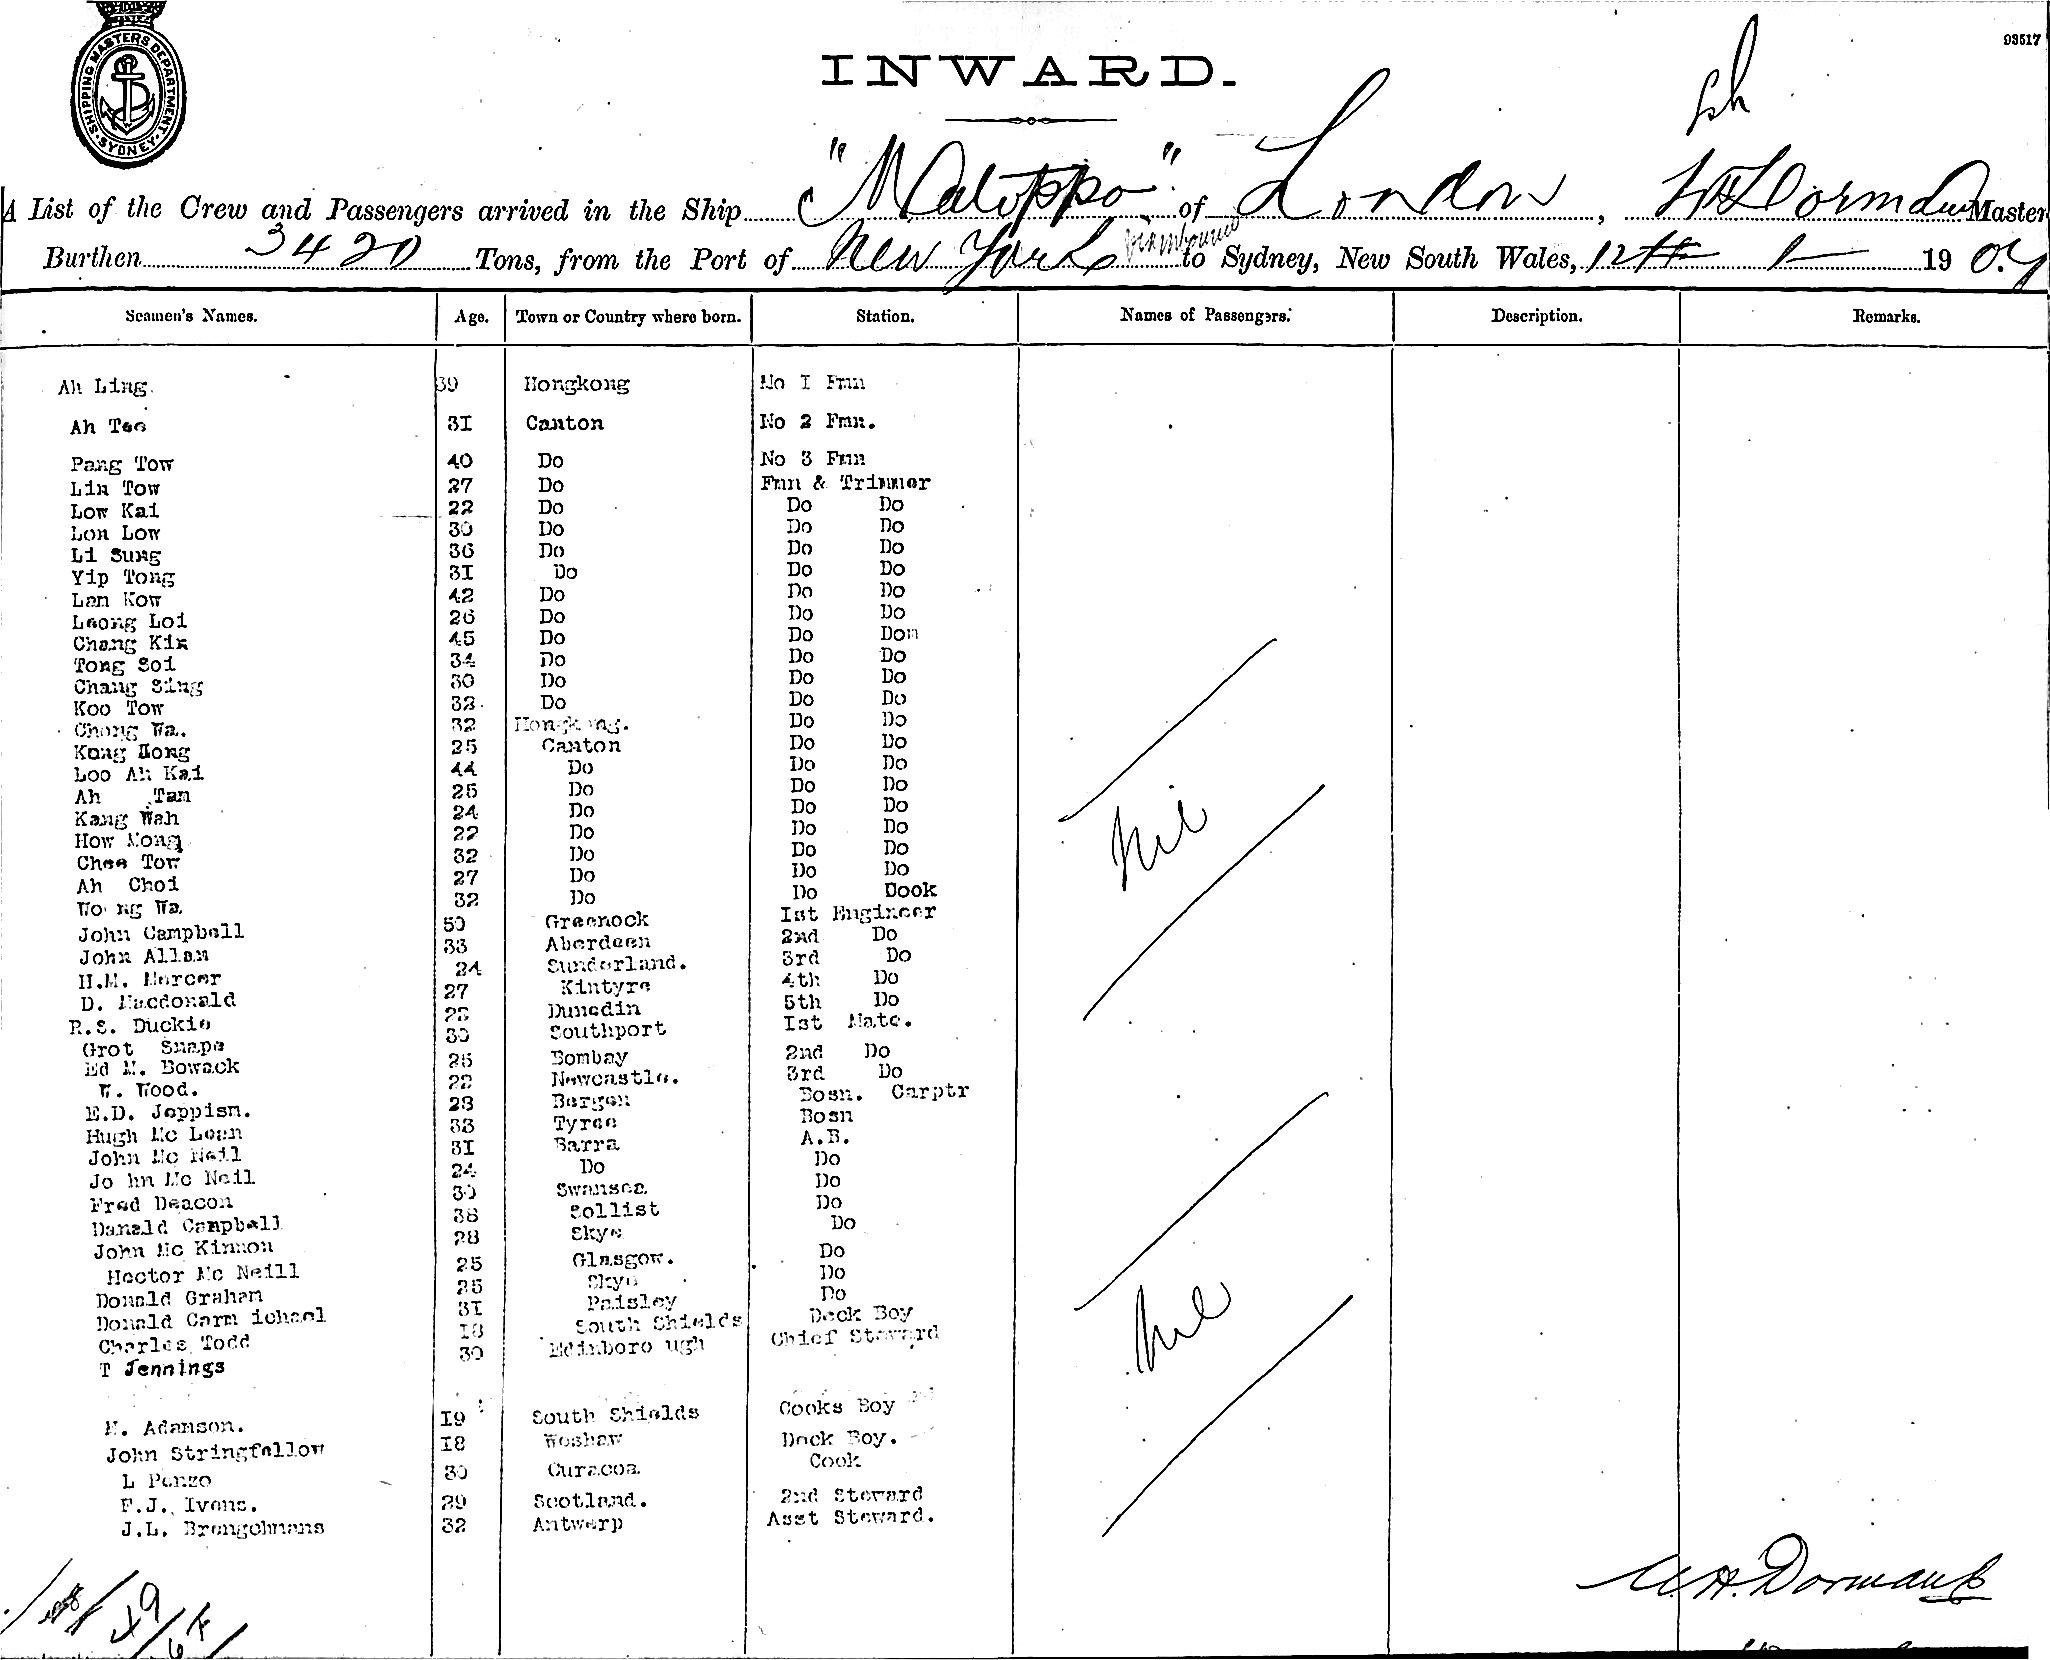 SHIPPING MASTERS DEPARTMENT
SYDNEY
93517
INWARD.
A List of the Crew and Passengers arrived in the Ship "Matoppo" of London, W H Dorman Master
Burthen 3420 Tons, from the Port of New York to Sydney, New South Wales, 12th 1 1907
Seamen's Names. Age. Town or Country where born. Station. Names of Passengers. Description. Remarks.
Ah Ling. 39 Hongkong No I Fmn
Ah Tee 3I Canton No 2 Fmn.
Pang Tow 40 Do No 3 Fmn
Lin Tow 27 Do Fmn & Trimmer
Low Kai 22 Do Do Do
Lon Low 30 Do Do Do
Li Sung 36 Do Do Do
Yip Tong 3I Do Do Do
Lan Kow 42 Do Do Do
Leong Loi 26 Do Do Do
Chang Kin 45 Do Do Don
Tong Soi 34 Do Do Do
Chang Sing 30 Do Do Do
Koo Tow 32 Do Do Do
Chong Wa. 32 Hongkong. Do Do
Kong Hong 25 Canton Do Do
Loo Ah Kai 44 Do Do Do
Ah Tan 25 Do Do Do
Kang Wah 24 Do Do Do
How Mong 22 Do Do Do
Chee Tow 32 Do Do Do
Ah Choi 27 Do Do Do
Wo ng Wa 32 Do Do Dook
John Campbell 50 Greenock Ist Engineer
John Allan 33 Aberdeen 2nd Do
H.M. Mercer 24 Sunderland. 3rd Do
D. Macdonald 27 Kintyre 4th Do
R.S. Duckie Dunedin 5th Do
Grot Snape 30 Southport Ist Mate.
Ed M. Bowack 25 Bombay 2nd Do
W. Wood. 22 Newcastle. 3rd Do
E.D. Jeppism. 23 Bergen Bosn. Carptr
Hugh Mc Lean 33 Tyree Bosn
John Mc Neil 3I Barra A.B.
Jo hn Mc Neil 24 Do Do
Fred Deacon 30 Swansea Do
Danald Campbell 38 Sollist Do
John Mc Kinnon 28 Skye Do
Hector Mc Neill 25 Glasgow. Do
Donald Graham 25 Skye Do
Donald Carm ichael 3I Paisley Do
Charles Todd I8 South Shields Deck Boy
T Jennings 30 Edinboro ugh Chief Steward
M. Adamson. I9 South Shields Cooks Boy
John Stringfellow I8 Weshaw Deck Boy.
L Penzo 30 Curacoa Cook
F.J. Ivens. 29 Scotland. 2nd Steward
J.L. Brengelmans 32 Antwerp Asst Steward.
Nil
Nil
W.H. Dorman